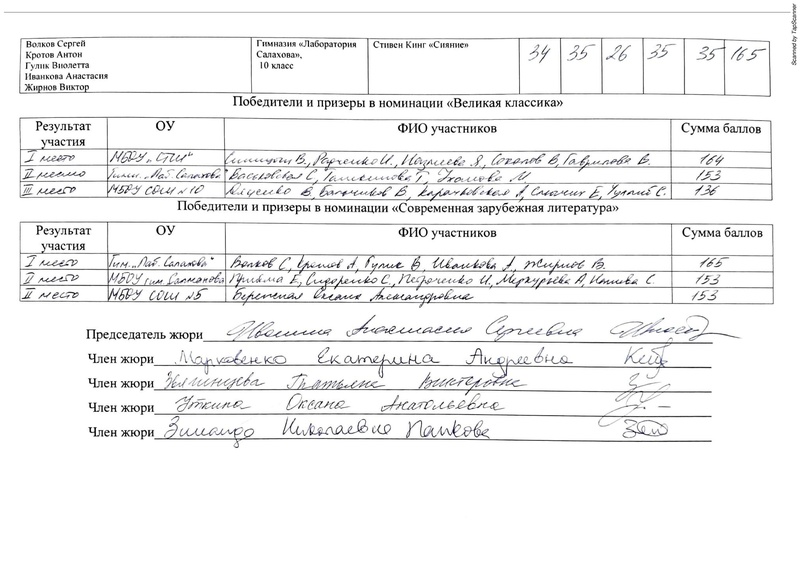 Scanned by TapScanner
Волков Сергей
Кротов Антон
Гулік Виолетта
Иванкова Анастасия
Жирнов Виктор
Гимназия «Лаборатория Салахова»,
10 класс
Стивен Кинг «Сияние»
34 35 26 35 35 165
Победители и призеры в номинации «Великая классика»
Результат участия ОУ ФИО участников Сумма баллов
I место МБОУ „СТШ“ В., Радченко И., Я, Соколов В, Гаврилова В. 164
II место Гимн. „Лаб. Салахова“ С, Т, М 153
III место МБОУ СОШ №10 В, В, А, Е, С. 136
Победители и призеры в номинации «Современная зарубежная литература»
Результат участия ОУ ФИО участников Сумма баллов
I место Гим. „Лаб. Салахова“ Волков С, Кротов А, Гулик В, Иванкова А, Жирнов В. 165
II место МБОУ гим. Салманова Е, Сидоренко С, Педаченко И, Меркурьева А, С. 153
II место МБОУ СОШ №5 Оксана Александровна 153
Председатель жюри Анастасия Сергеевна
Член жюри Марковенко Екатерина Андреевна
Член жюри Викторовна
Член жюри Уткина Оксана Анатольевна
Член жюри Николаевна